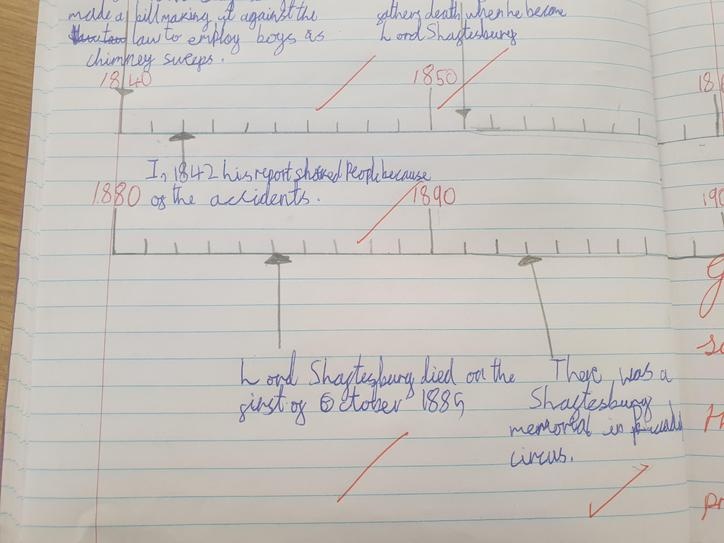 made a bill making it against the
law to employ boys as
chimney sweeps.
fathers death when he become
Lord Shaftesbury
1840
1850
18
In 1842 his report shocked People because
of the accidents.
1880
1890
190
Lord Shaftesbury died on the
first of October 1885
There was a
Shaftesbury
memorial in
circus.